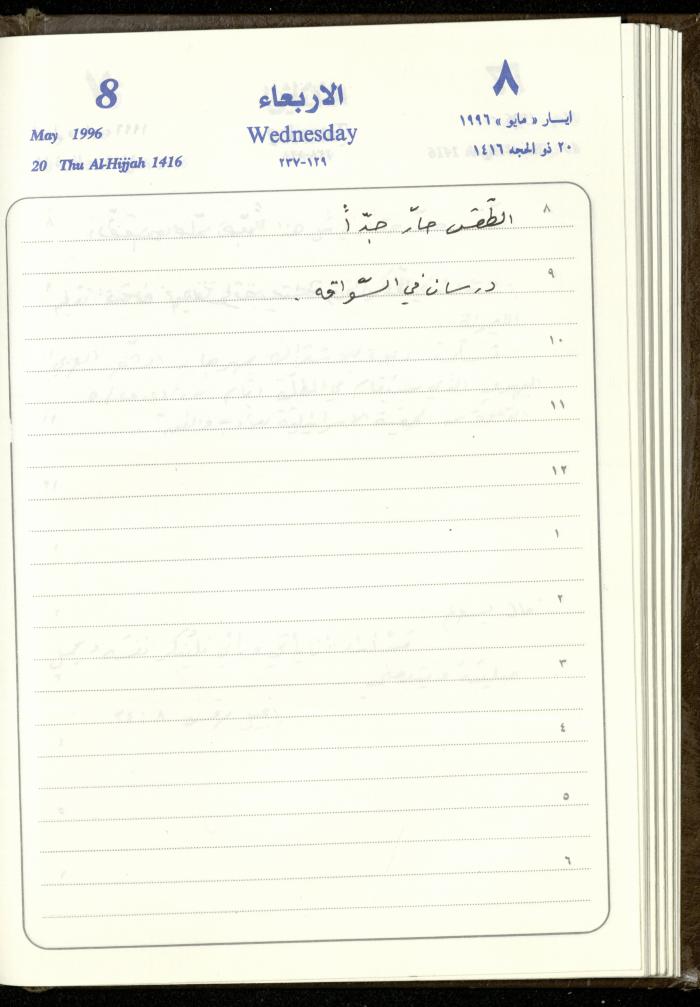 8
الاربعاء
٨
May 1996
Wednesday
ايسار « مايو » ١٩٩٦
20 Thu Al-Hijjah 1416
١٢٩-٢٣٧
٢٠ ذو الحجه ١٤١٦
٨ الطّقس حارّ جدّاً
٩ درسان في السّواقه .
١٠
١١
١٢
١
٢
٣
٤
٥
٦